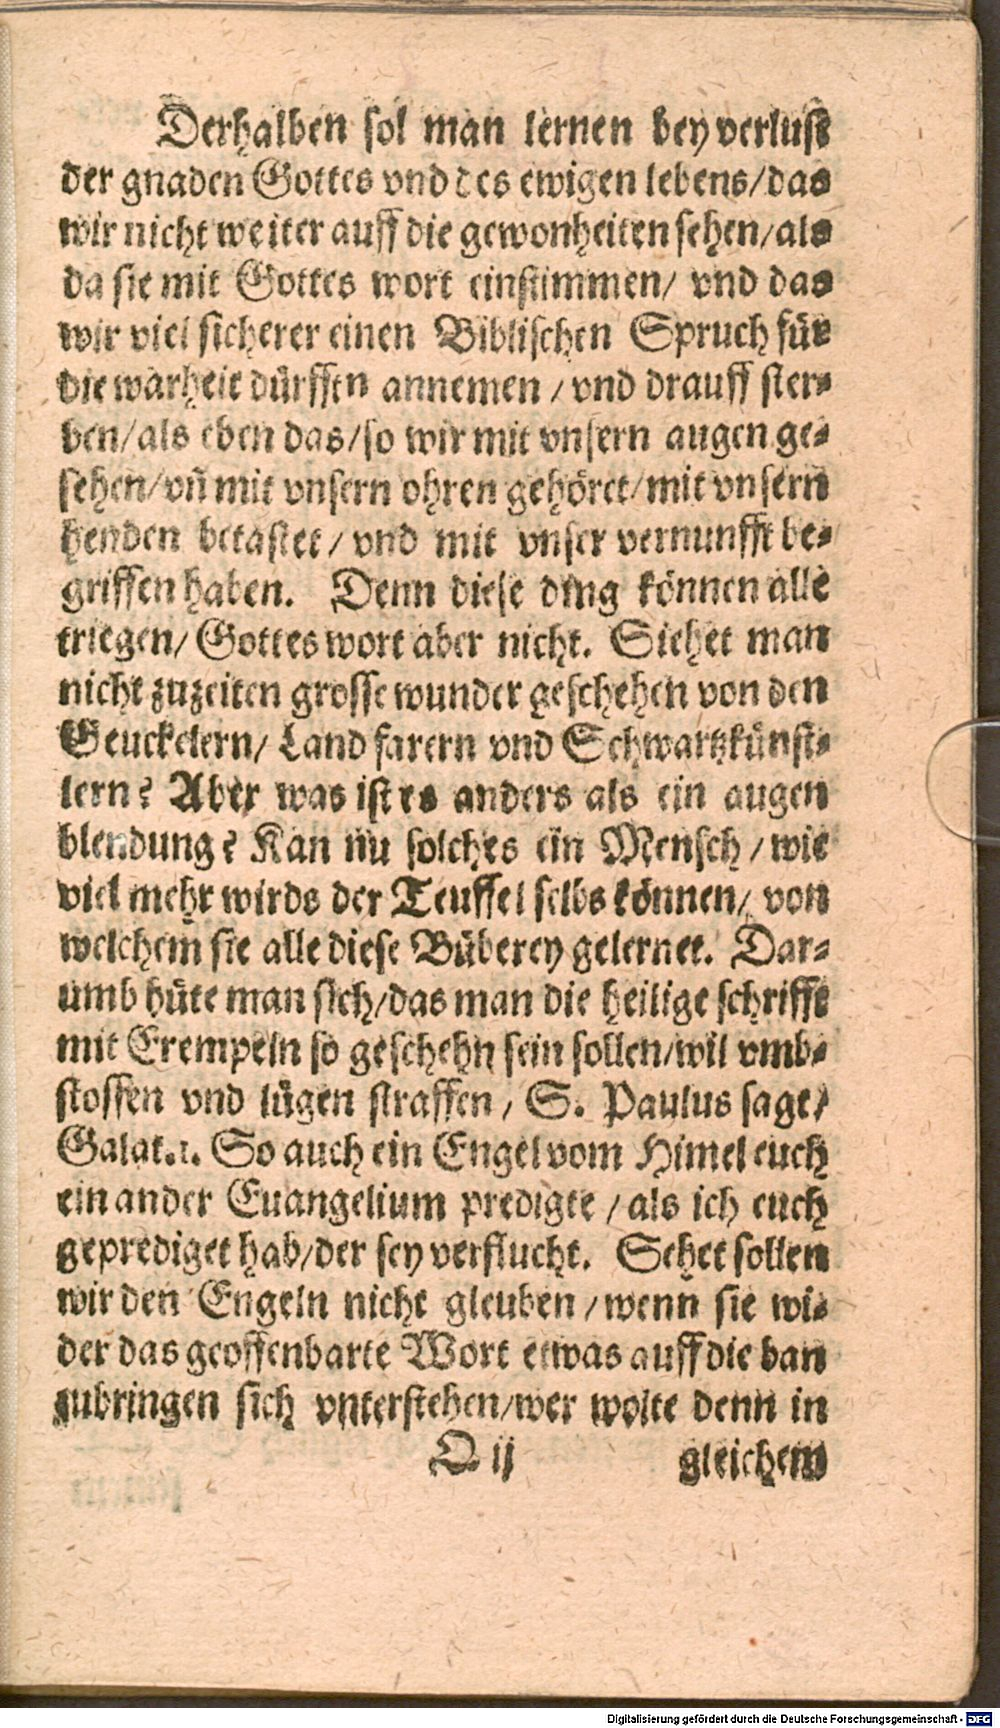 Derhalben sol man lernen bey verlust
der gnaden Gottes vnd des ewigen lebens/das
wir nicht weiter auff die gewonheiten sehen/als
da sie mit Gottes wort einstimmen/ vnd das
wir viel sicherer einen Biblischen Spruch für
die warheit dürffen annemen / vnd drauff ster-
ben/als eben das/so wir mit vnsern augen ge-
sehen/vñ mit vnsern ohren gehöret/mit vnsern
henden betastet / vnd mit vnser vernunfft be-
griffen haben. Denn diese ding können alle
triegen/ Gottes wort aber nicht. Siehet man
nicht zuzeiten grosse wunder geschehen von den
Geuckelern/ Land farern vnd Schwartzkünst-
lern? Aber was ist es anders als ein augen
blendung? Kan nu solches ein Mensch / wie
viel mehr wirds der Teuffel selbs können/ von
welchem sie alle diese Büberey gelernet. Dar-
umb hüte man sich/das man die heilige schrifft
mit Exempeln so geschehn sein sollen/wil vmb-
stossen vnd lügen straffen / S. Paulus sagt/
Galat.1. So auch ein Engel vom Himel euch
ein ander Euangelium predigte / als ich euch
geprediget hab/der sey verflucht. Sehet sollen
wir den Engeln nicht gleuben / wenn sie wi-
der das geoffenbarte Wort etwas auff die ban
zubringen sich vnterstehen/wer wolte denn in
O ij gleichem
Digitalisierung gefördert durch die Deutsche Forschungsgemeinschaft - DFG